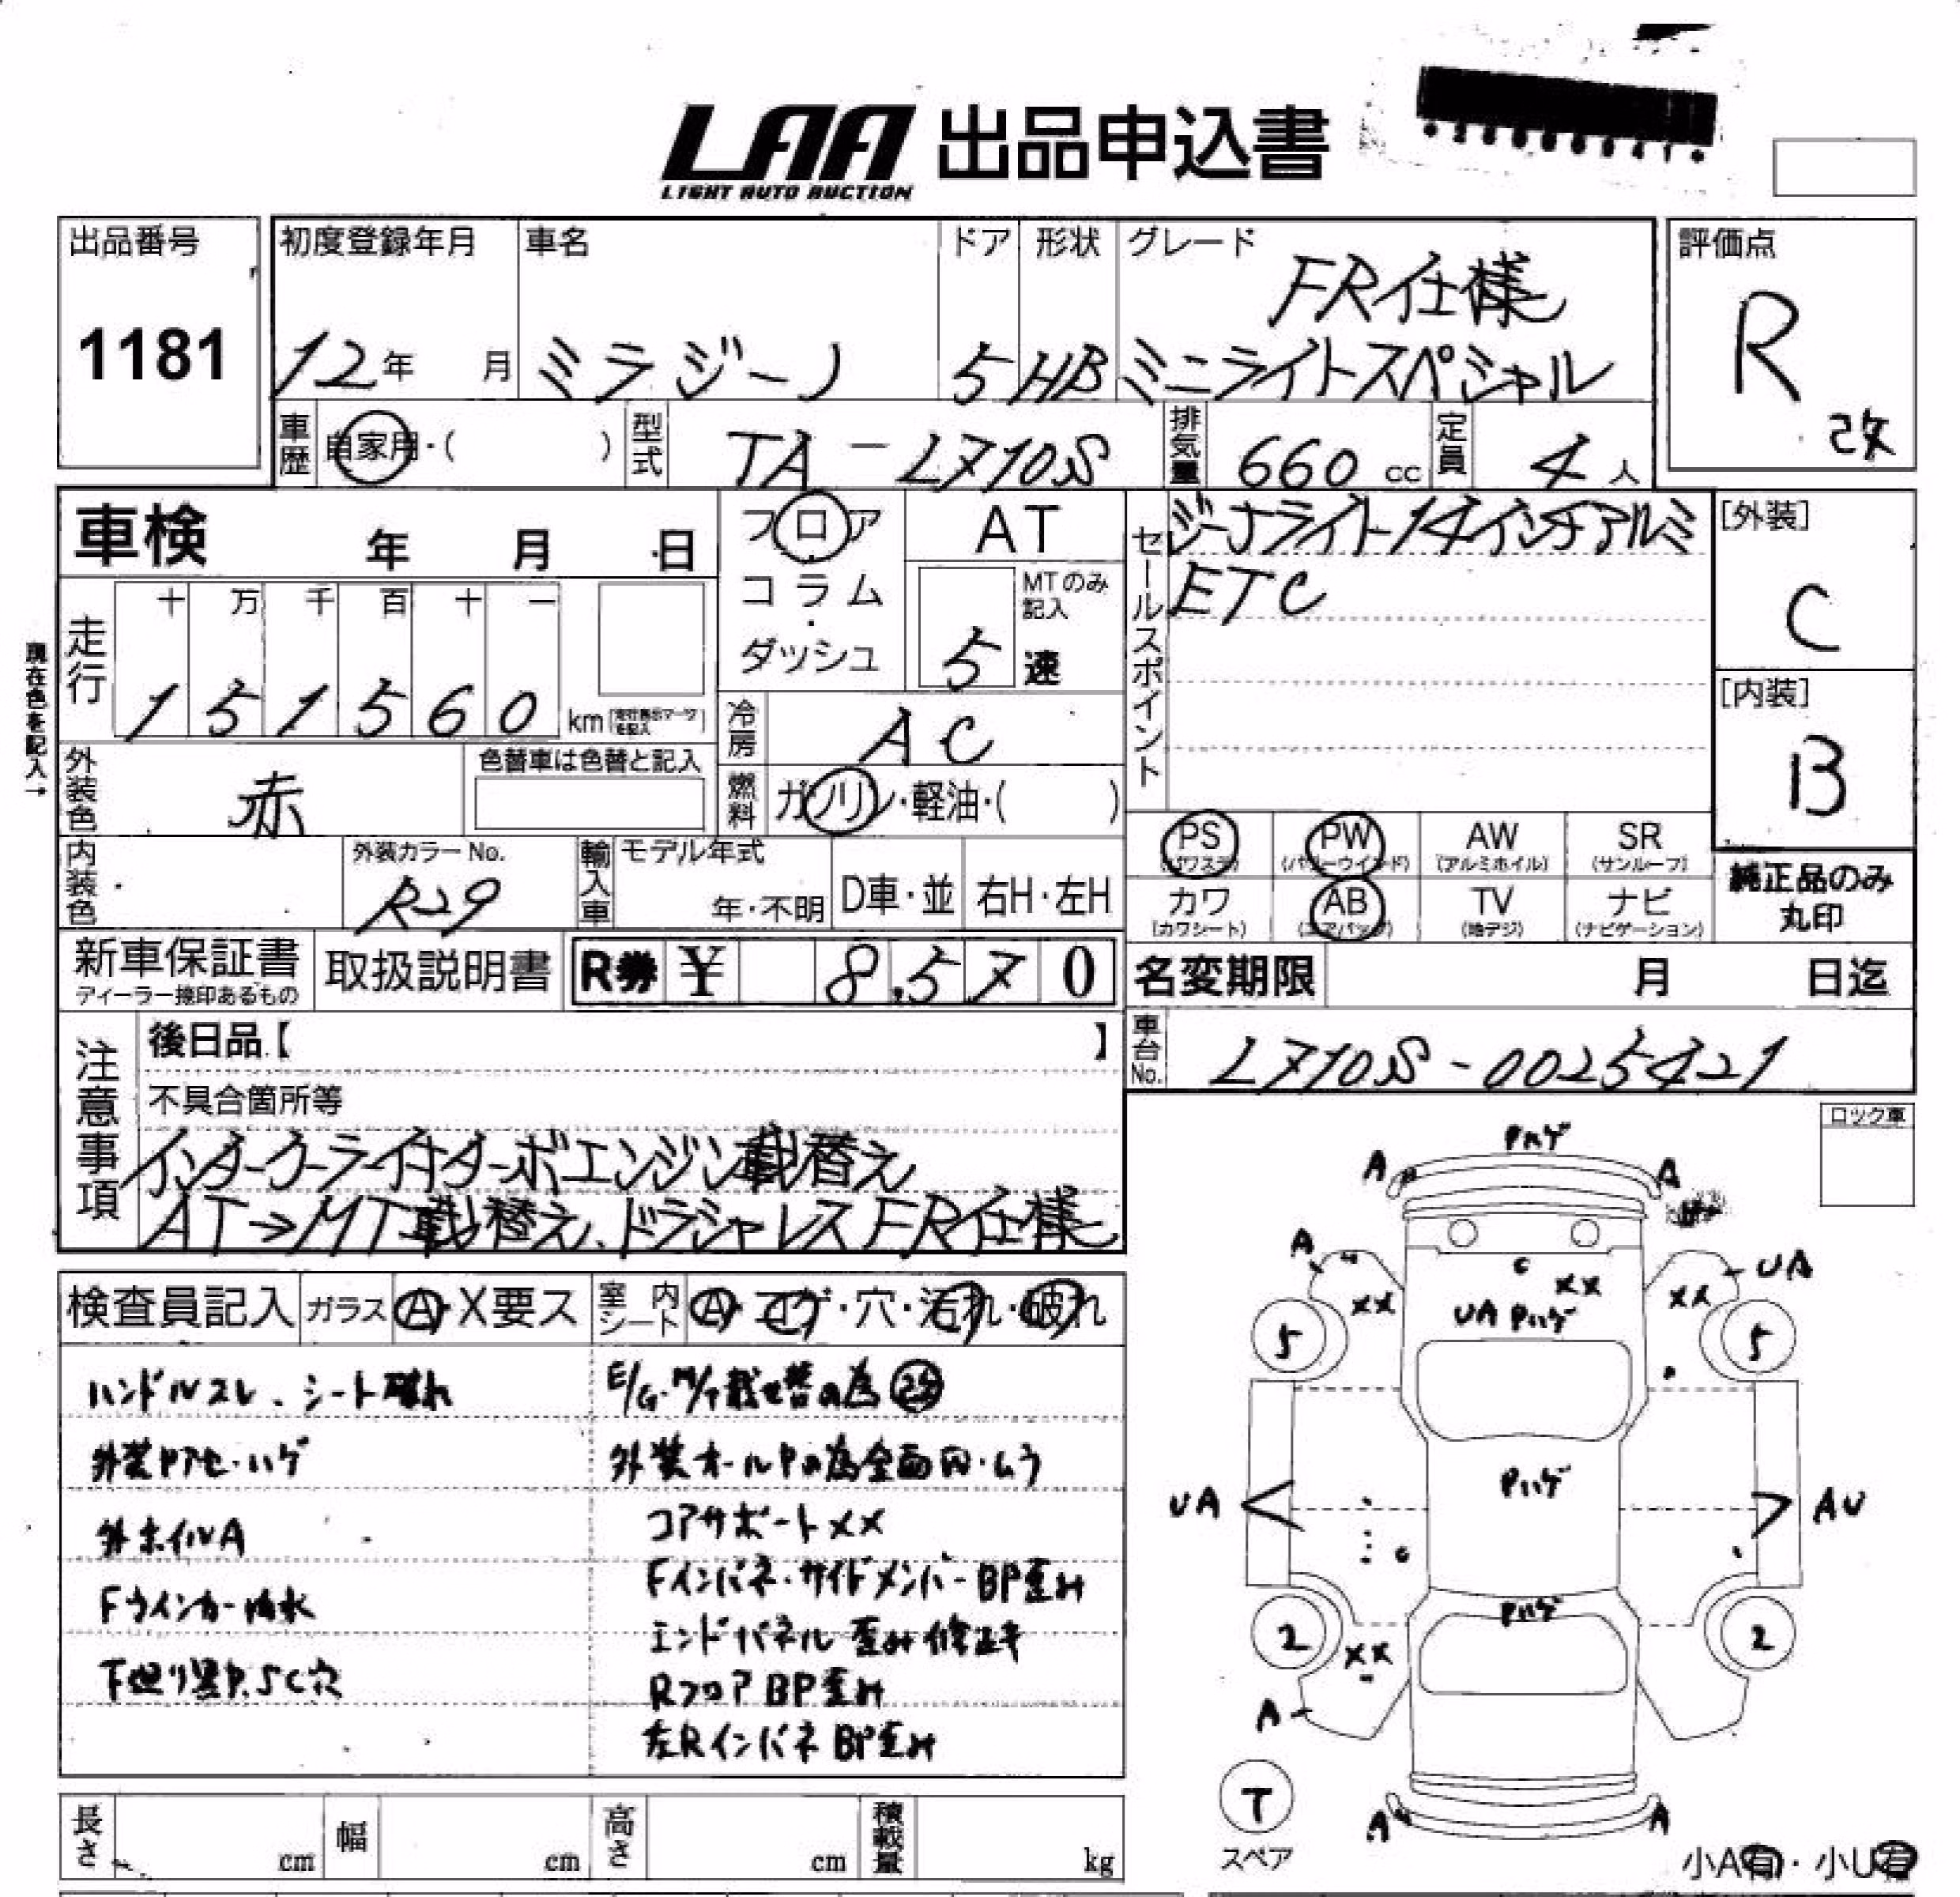 LAA 出品申込書
LIGHT AUTO AUCTION
出品番号
1181
初度登録年月
12年 月
車名
ミラジーノ
ドア
5
形状
HB
グレード
FR仕様
ミニライトスペシャル
評価点
R
改
車歴 自家用・( )
型式 TA-L710S
排気量 660 cc
定員 4 人
車検 年 月 日
フロア・コラム・ダッシュ
AT
MTのみ記入
5 速
セールスポイント
ジーノライト14インチアルミ
ETC
[外装]
C
[内装]
B
現在色を記入→
走行
十 万 千 百 十 一
1 5 1 5 6 0 km
冷房 AC
燃料 ガソリン・軽油・( )
外装色 赤
色替車は色替と記入
内装色
外装カラーNo.
R29
輸入車
モデル年式
年・不明
D車・並
右H・左H
PS (パワステ)
PW (パワーウインド)
AW (アルミホイル)
SR (サンルーフ)
カワ (カワシート)
AB (エアバッグ)
TV (地デジ)
ナビ (ナビゲーション)
純正品のみ
丸印
新車保証書
ディーラー捺印あるもの
取扱説明書
R券 ¥ 8,570
名変期限 月 日迄
車台No. L710S-0025421
注意事項
後日品【 】
不具合箇所等
インタークーラー付ターボエンジン載替え
AT→MT載替え、ドラシャレスFR仕様
ロック車
検査員記入
ガラス A・X要ス
室内シート A・コゲ・穴・汚れ・破れ
ハンドルスレ、シート破れ
外装Pアセ・ハゲ
外ホイルA
Fウインカー内水
下廻り黒P.SC穴
E/G・M/T載せ替の為改
外装オールPの為全面凹・ムラ
コアサポートXX
Fインパネ・サイドメンバーBP歪み
エンドパネル歪み修正キ
RフロアBP歪み
左RインパネBP歪み
Pハゲ
A
A
A
UA
XX
C
XX
XX
UA Pハゲ
5
5
Pハゲ
UA
AU
C
Pハゲ
2
2
XX
A
T
スペア
A
A
小A有・小U有
長さ cm
幅 cm
高さ cm
積載量 kg